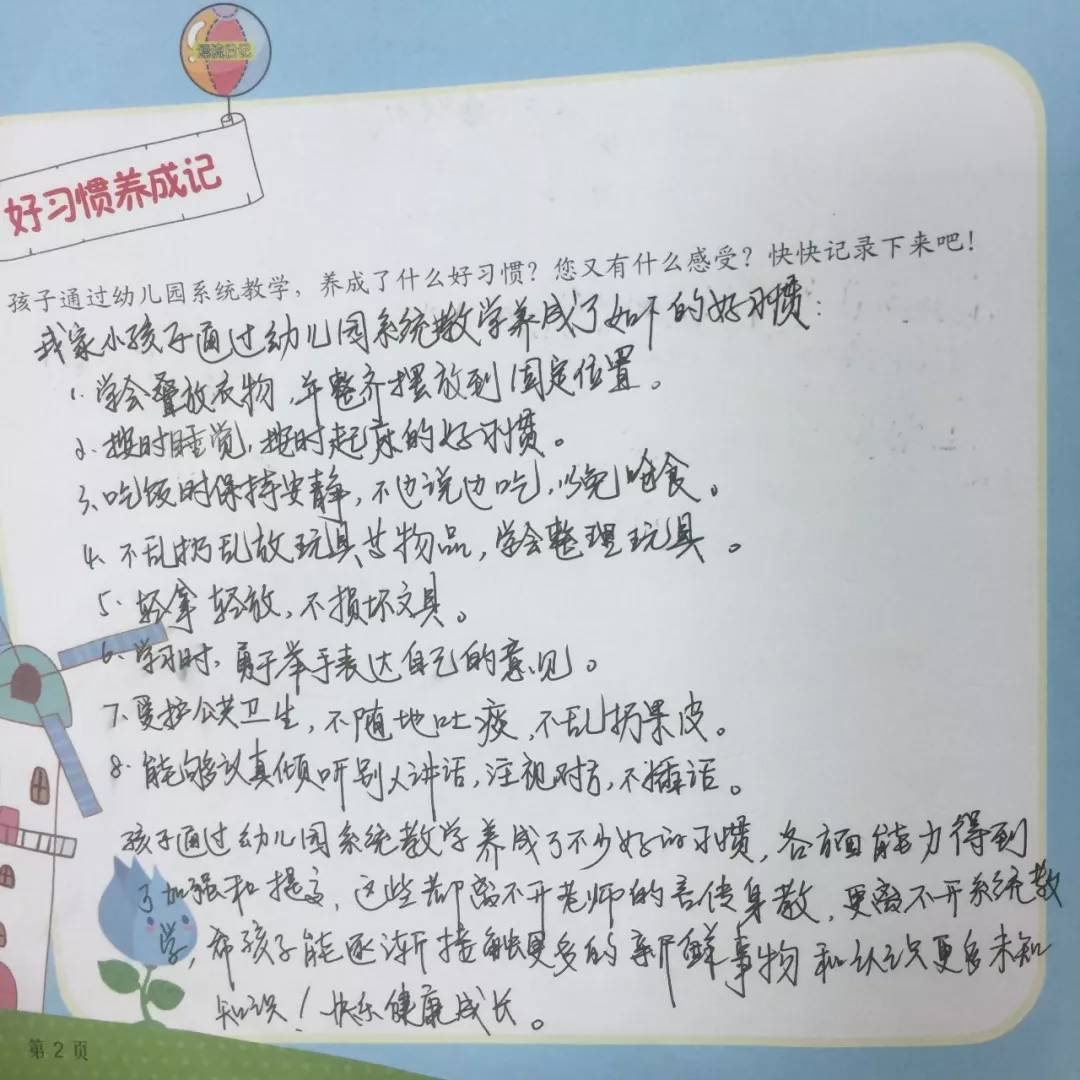 漂流日记
好习惯养成记
孩子通过幼儿园系统教学，养成了什么好习惯？您又有什么感受？快快记录下来吧！
我家小孩子通过幼儿园系统教学养成了如下的好习惯：
1.学会叠放衣物，并整齐摆放到固定位置。
2.按时睡觉，按时起床的好习惯。
3.吃饭时保持安静，不边说边吃，以免呛食。
4.不乱扔乱放玩具其物品，学会整理玩具。
5.轻拿轻放，不损坏文具。
6.学习时，勇于举手表达自己的意见。
7.爱护公共卫生，不随地吐痰，不乱扔果皮。
8.能够认真倾听别人讲话，注视对方，不插话。
孩子通过幼儿园系统教学养成了不少好的习惯，各方面能力得到
了加强和提高，这些都离不开老师的言传身教，更离不开系统教
学，希孩子能逐渐接触更多的新鲜事物和认识更多未知
知识！快乐健康成长。
第2页